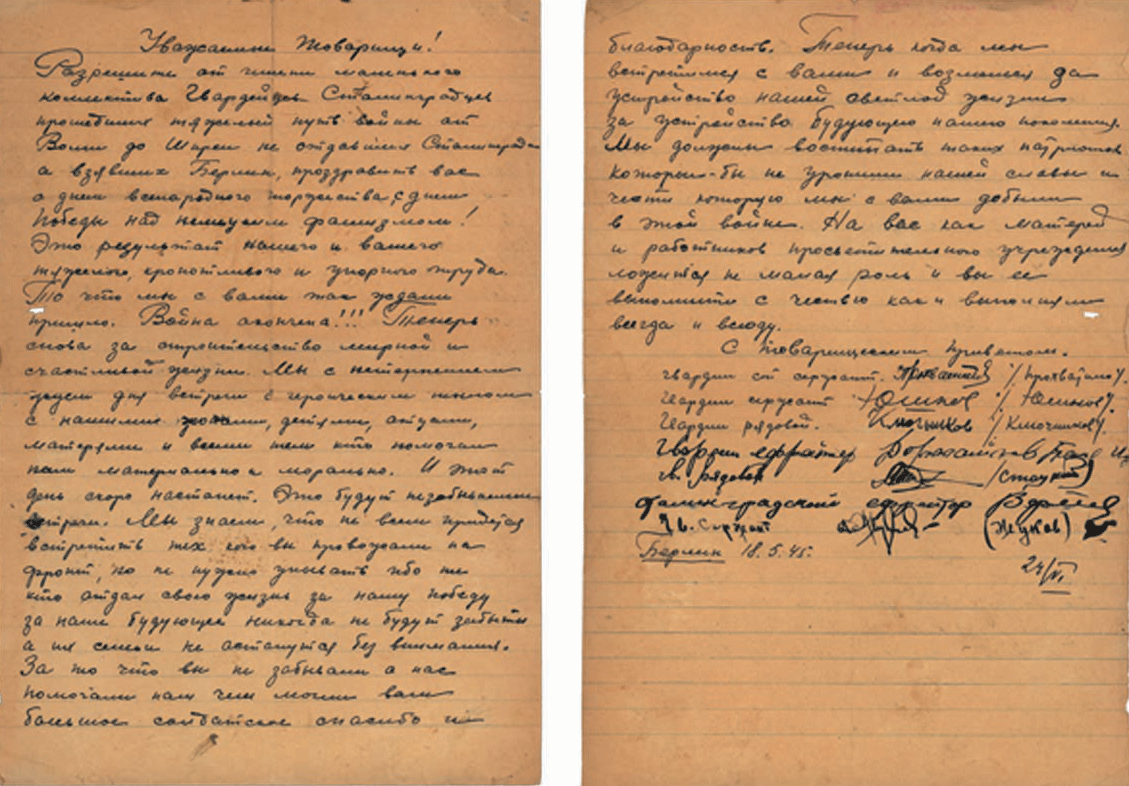 Уважаемые Товарищи!
Разрешите от имени маленького
коллектива Гвардейцев Сталинградцев
прошедших тяжелый путь войны от
Волги до Шпреи не отдавших Сталинграда
а взявших Берлин, проздравить вас
с днем всенародного торжества, с днем
Победы над немецким фашизмом!
Это результат нашего и вашего
тяжелого, кропотливого и упорного труда.
То что мы с вами так ждали
пришло. Война окончена!!! Теперь
снова за строительство мирной и
счастливой жизни. Мы с нетерпением
ждем дня встречи с героическим
с нашими женами, детьми, отцами,
матерями и всеми теми кто помогал
нам материально и морально. И этот
день скоро настанет. Это будут незабываемые
встречи. Мы знаем, что не всем придется
встретить тех кого вы провожали на
фронт, но не нужно унывать ибо те
кто отдал свою жизнь за нашу победу
за наше будующее никогда не будут забыты
а их семьи не останутся без внимания.
За то что вы не забывали о нас
помогали нам чем могли вам
большое солдатское спасибо и
благодарность. Теперь когда мы
встретимся с вами и возьмемся за
устройство нашей светлой жизни
за устройство будующего нашего поколения.
Мы должны воспитать таких патриотов
которые-бы не уронили нашей славы и
чести которую мы с вами добыли
в этой войне. На вас как матерей
и работников просветительного учреждения
ложится не малая роль и вы ее
выполните с честью как и выполняли
всегда и всюду.
С товарищеским приветом.
гвардии ст сержант.
Гвардии сержант Юшков /Юшков/.
Гвардии рядовой. Ключников /Ключников/.
Гвардии ефрейтор
Гв. Рядовой
ефрейтор
Гв. Сержант (Жуков)
Берлин 18.5.45г.
24/VI